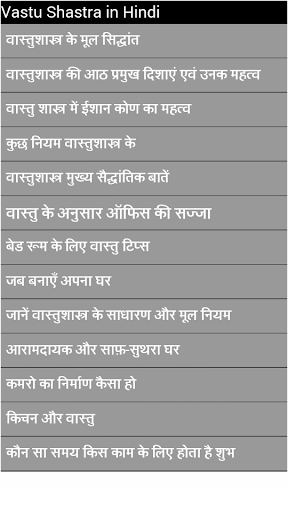 Vastu Shastra in Hindi
वास्तुशास्त्र के मूल सिद्धांत
वास्तुशास्त्र की आठ प्रमुख दिशाएं एवं उनक महत्व
वास्तु शास्त्र में ईशान कोण का महत्व
कुछ नियम वास्तुशास्त्र के
वास्तुशास्त्र मुख्य सैद्धांतिक बातें
वास्तु के अनुसार ऑफिस की सज्जा
बेड रूम के लिए वास्तु टिप्स
जब बनाएँ अपना घर
जानें वास्तुशास्त्र के साधारण और मूल नियम
आरामदायक और साफ़-सुथरा घर
कमरो का निर्माण कैसा हो
किचन और वास्तु
कौन सा समय किस काम के लिए होता है शुभ